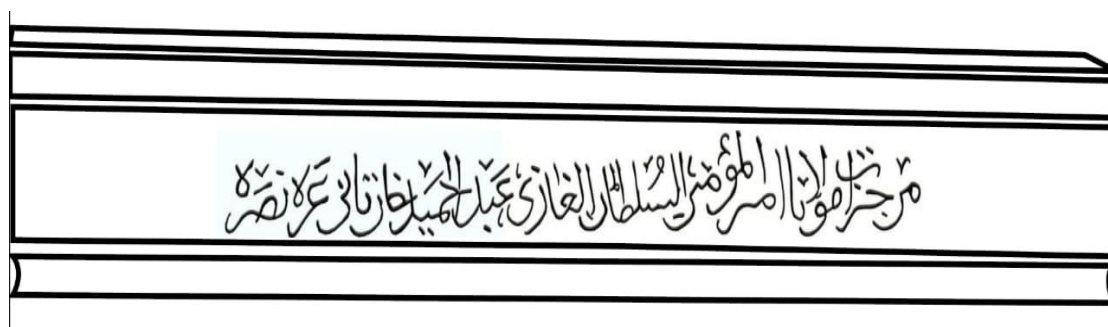 من خيرات مولانا امير المؤمنين السلطان الغازي عبد الحميد خان ثاني عز نصره